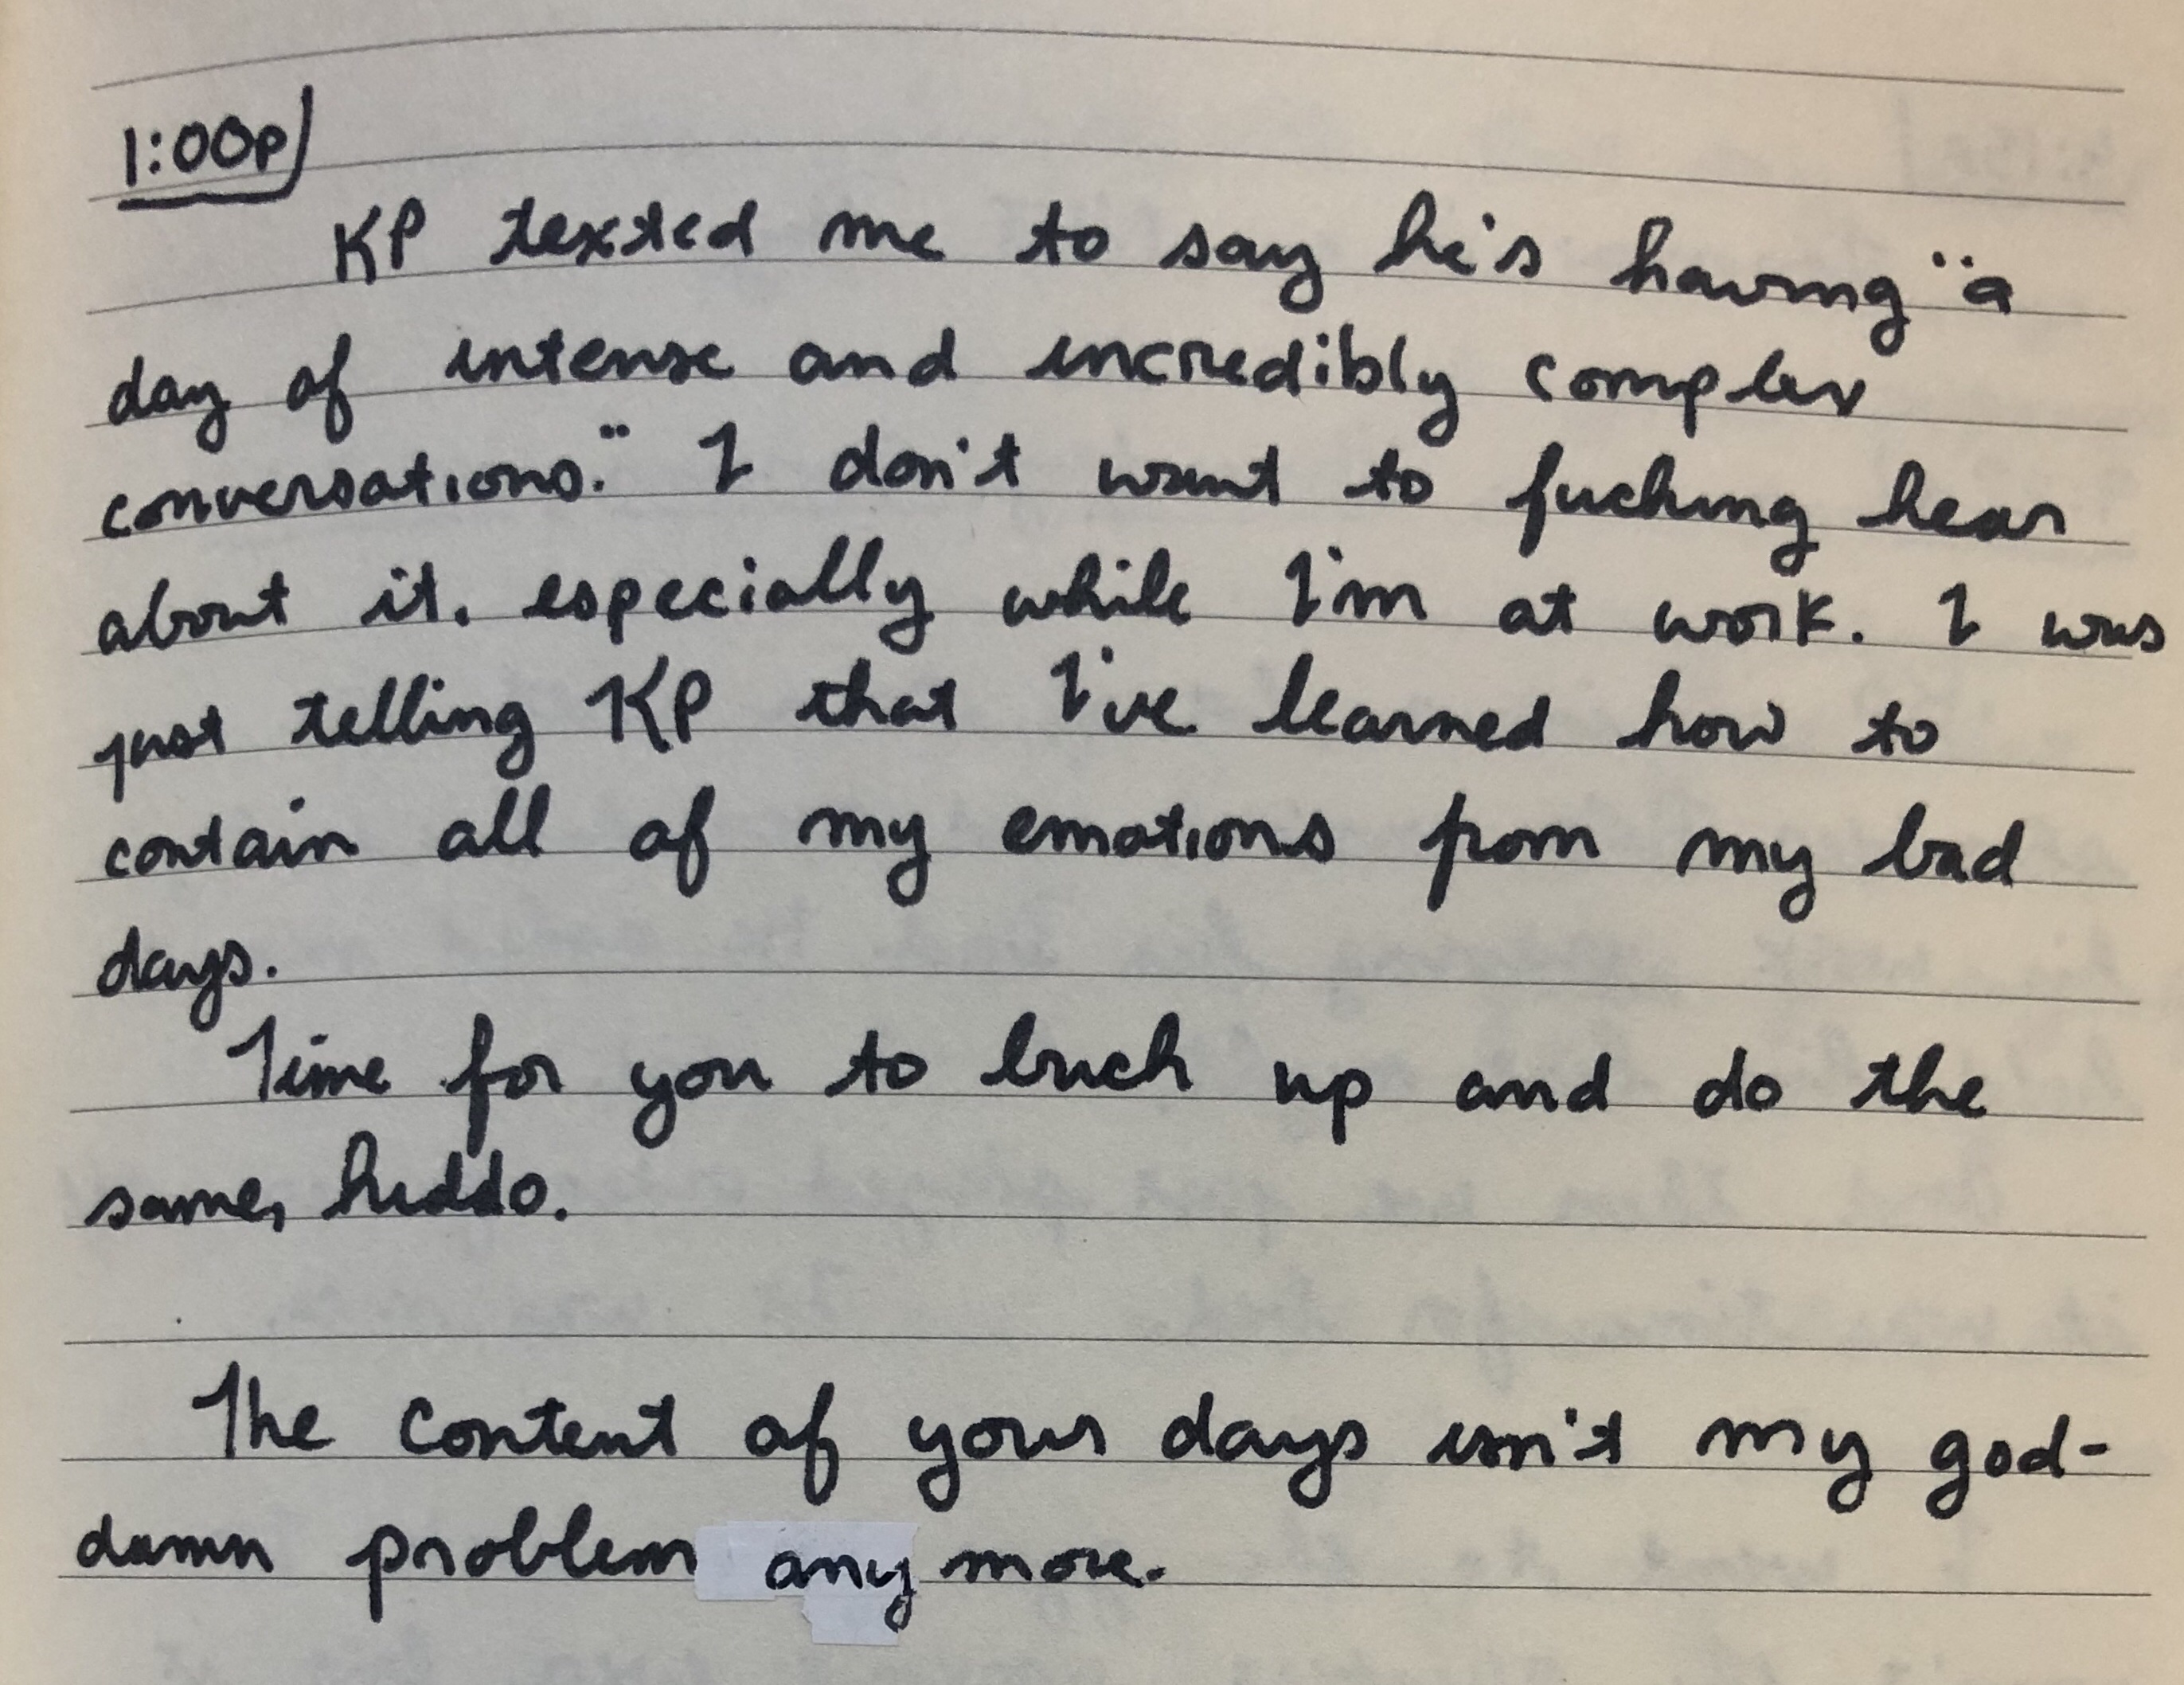 1:00p
KP texted me to say he's having "a
day of intense and incredibly complex
conversations." I don't want to fucking hear
about it, especially while I'm at work. I was
just telling KP that I've learned how to
contain all of my emotions from my bad
days.
Time for you to buck up and do the
same, kiddo.
The content of your days isn't my god-
damn problem anymore.